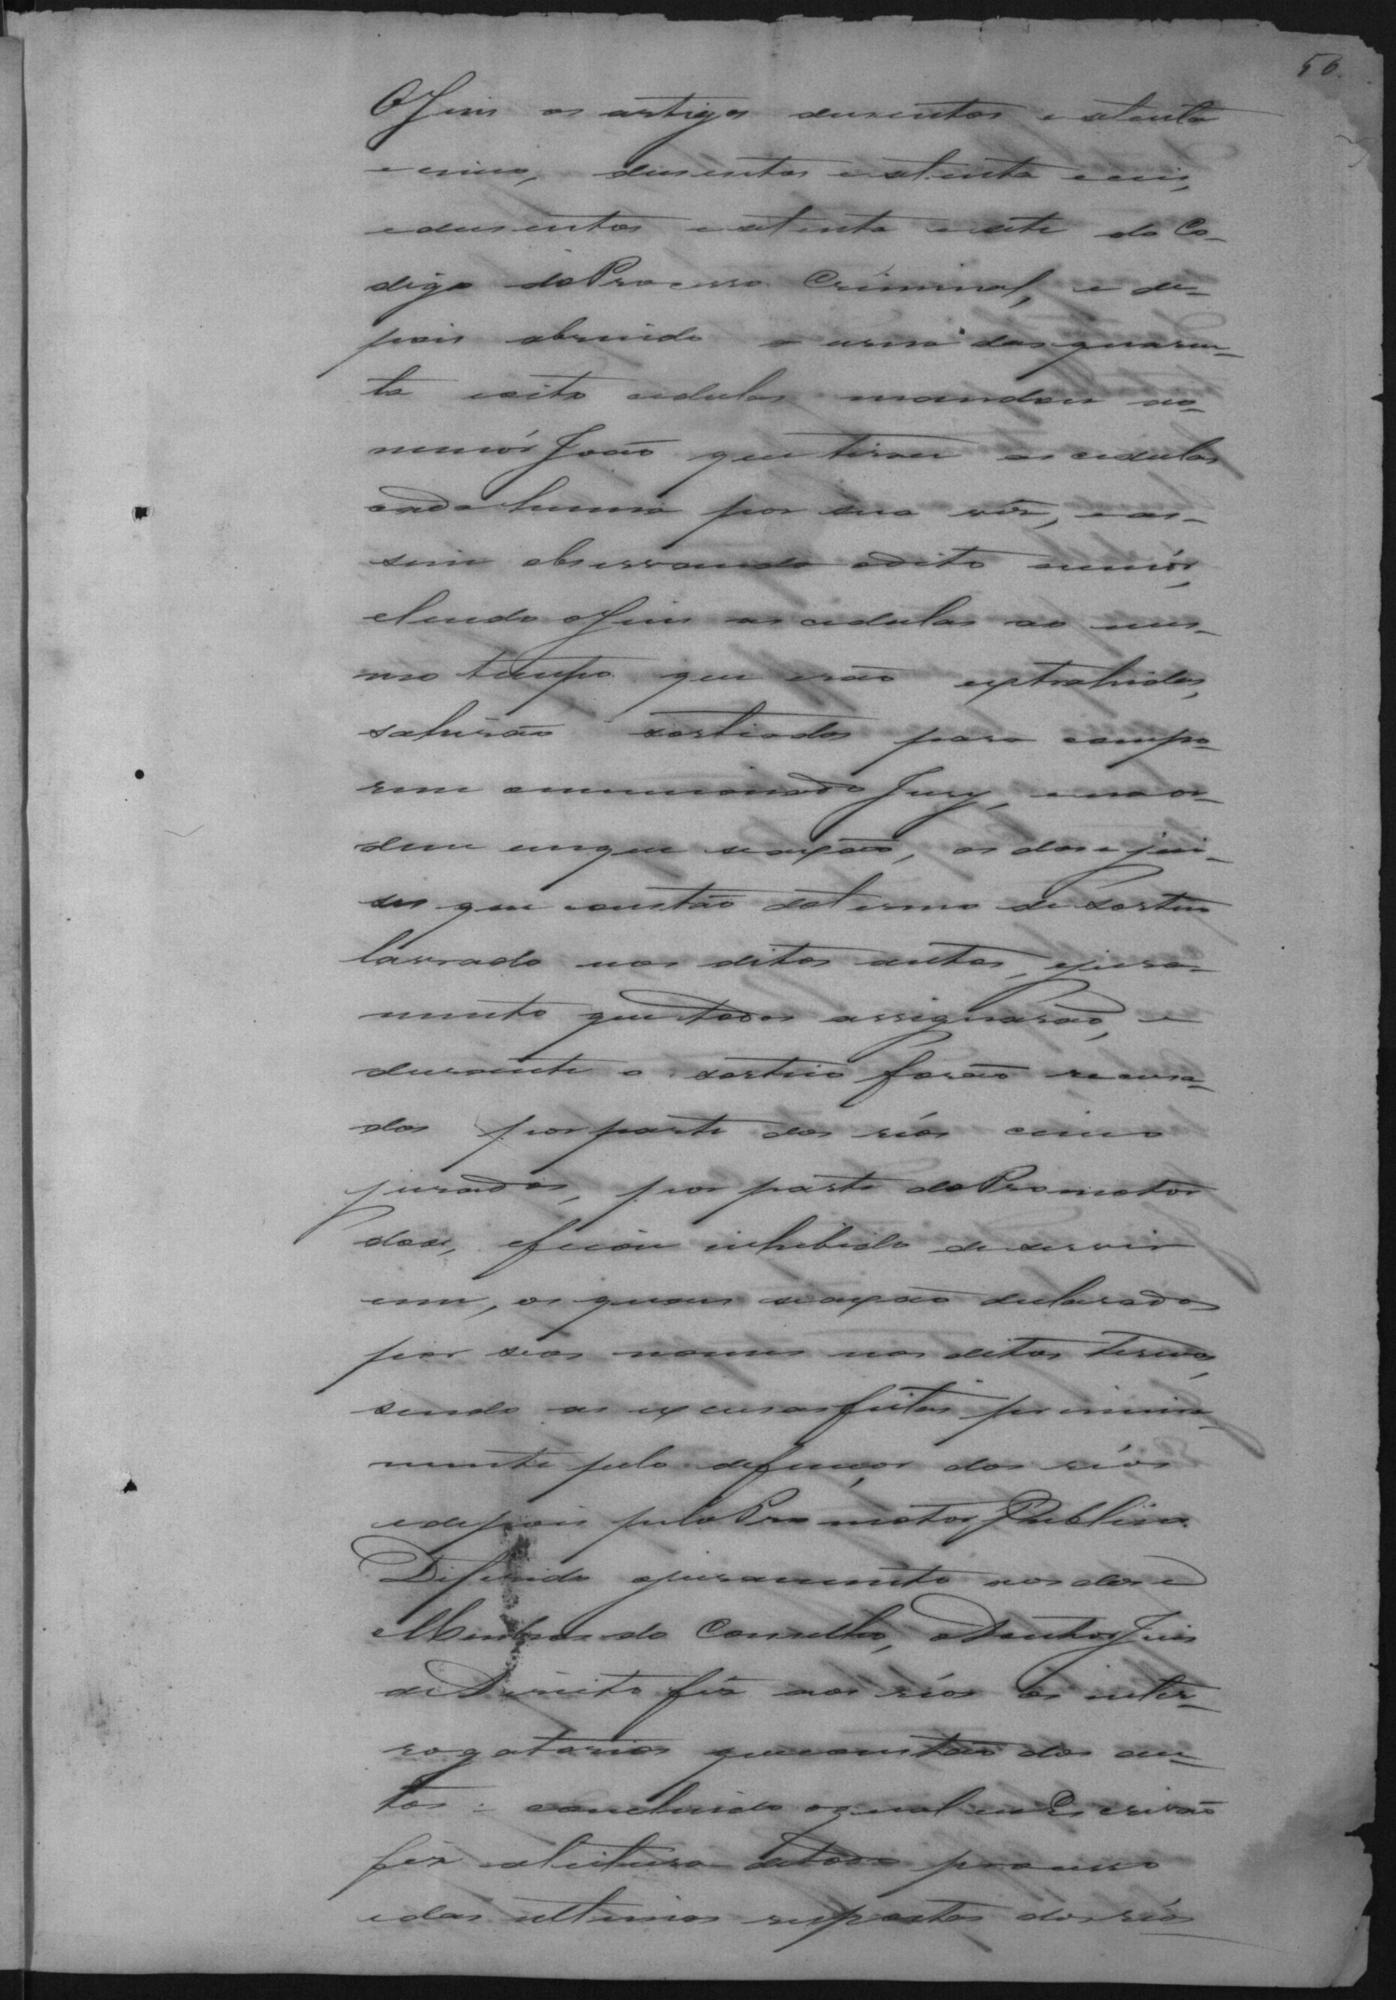 56.
O Juis os artigos dusentos e setenta
e cinco, dusentos e setenta e seis,
e dusentos e setenta e sete do Co-
digo do Processo Criminal, e de-
pois abrindo a urna das quaren-
ta e oito cedulas mandou ao
menór João que tirou as cedulas
cada huma por sua vêz, e as-
sim observando o dito menór,
e lendo o Juis as cedulas ao mes-
mo tempo que erão extrahidas,
sahirão sorteados para compo-
rem o mencionado Jury, e na or-
dem em que se achão, os dose jui-
ses que constão do termo de sorteio
lavrado nos ditos autos, e jura-
mento que todos assignarão, e
durante o sorteio forão recusa-
dos por parte dos réos cinco
jurados, por parte do Promotor
dose, e ficou inhibido de servir
um, os quaes se achão declarados
por seos nomes nos ditos termos,
sendo as excusas feitas primeira-
mente pelo defensor dos réos
e depois pelo Promotor Publico.
Diferido o juramento aos dose
Membros do Conselho, o Doutor Juis
de Direito fêz aos réos os inter-
rogatorios que constão dos au-
tos: concluido o qual eu Escrivão
fêz a leitura de todo processo
e das ultimas respostas dos réos